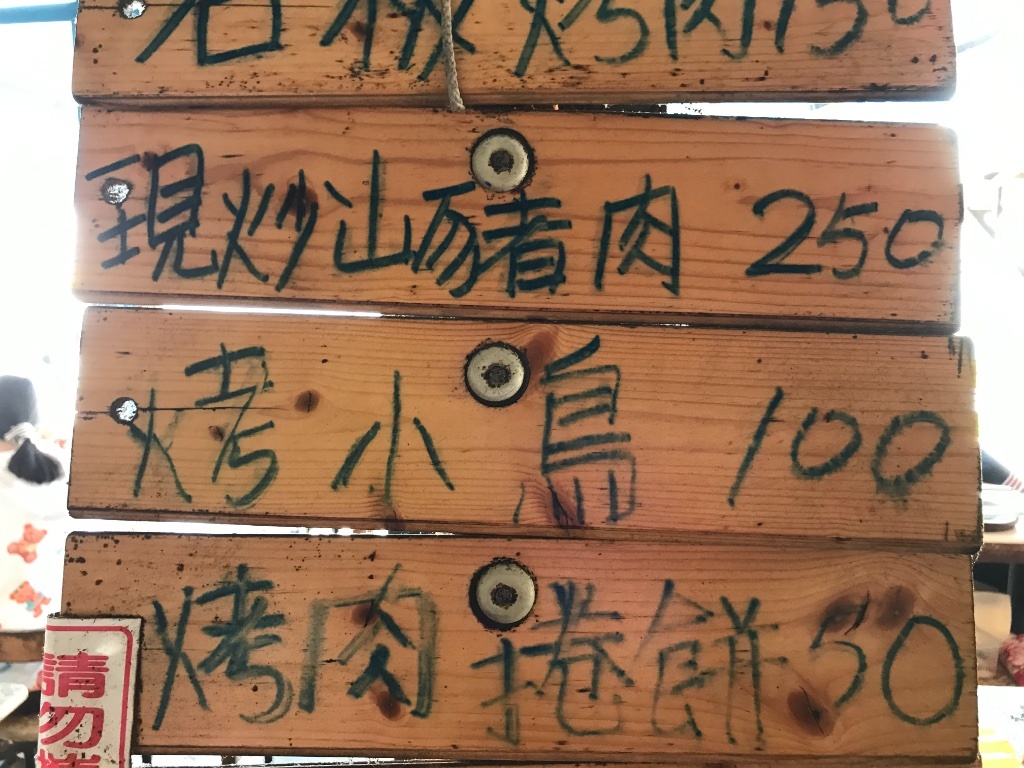 石板烤肉150
現炒山豬肉 250
烤小鳥 100
烤肉捲餅 50
請勿